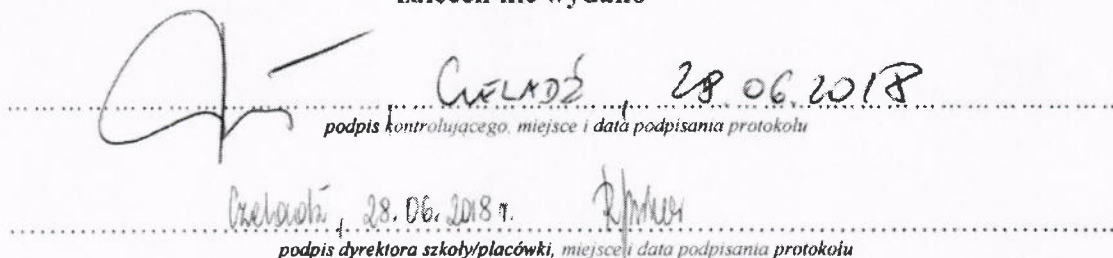 zaleceń nie wydano
CZELADŹ 28.06.2018
podpis kontrolującego, miejsce i data podpisania protokołu
Czeladź, 28.06.2018 r.
podpis dyrektora szkoły/placówki, miejsce i data podpisania protokołu